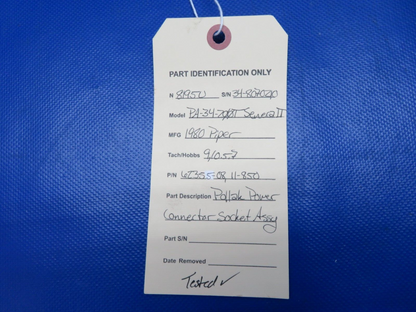 PART IDENTIFICATION ONLY
N 8195U S/N 34-8070210
Model PA-34-200T Seneca II
MFG 1980 Piper
Tach/Hobbs 9105.7
P/N 67355-08, 11-850
Part Description Pollak Power
Connector Socket Assy
Part S/N
Date Removed
Tested ✓